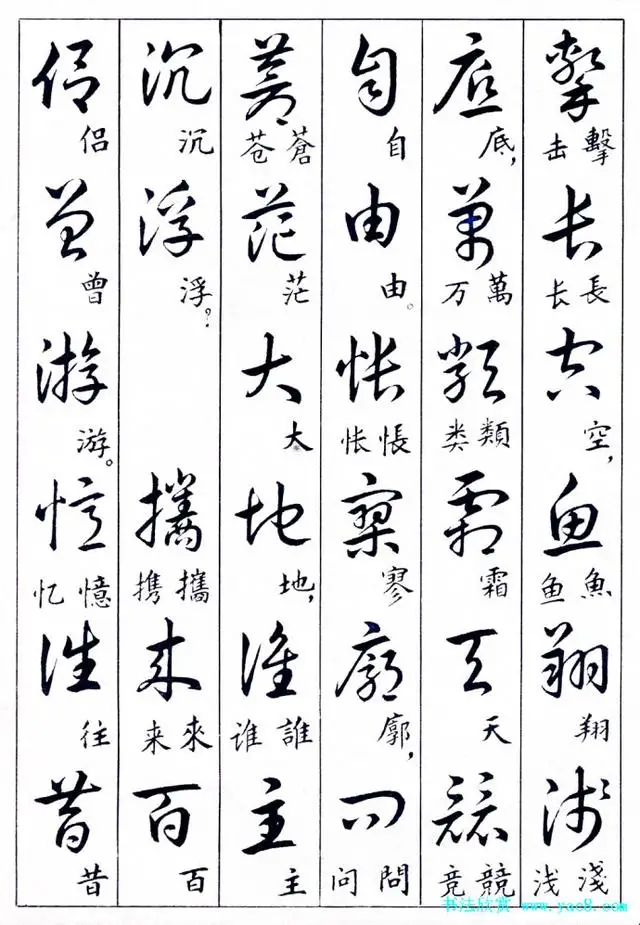 擊長空魚翔淺
擊击 長长 空， 魚鱼 翔 淺浅
底萬類霜天競
底， 萬万 類类 霜 天 競竞
自由悵寥廓問
自 由。 悵怅 寥 廓， 問问
蒼茫大地誰主
蒼苍 茫 大 地， 誰谁 主
沉浮攜來百
沉 浮？ 攜携 來来 百
侶曾游憶往昔
侶 曾 游。 憶忆 往 昔
书法欣赏 www.yac8.com